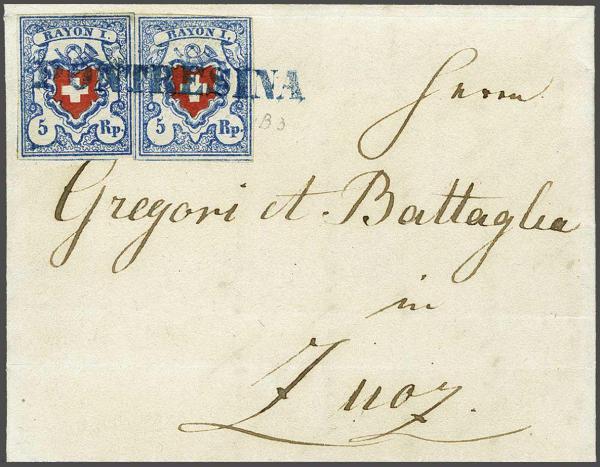 RAYON I. RAYON I.
PONTRESINA
5 Rp. 5 Rp.
B 3
Herrn
Gregori et Battaglia
in
Zuoz.